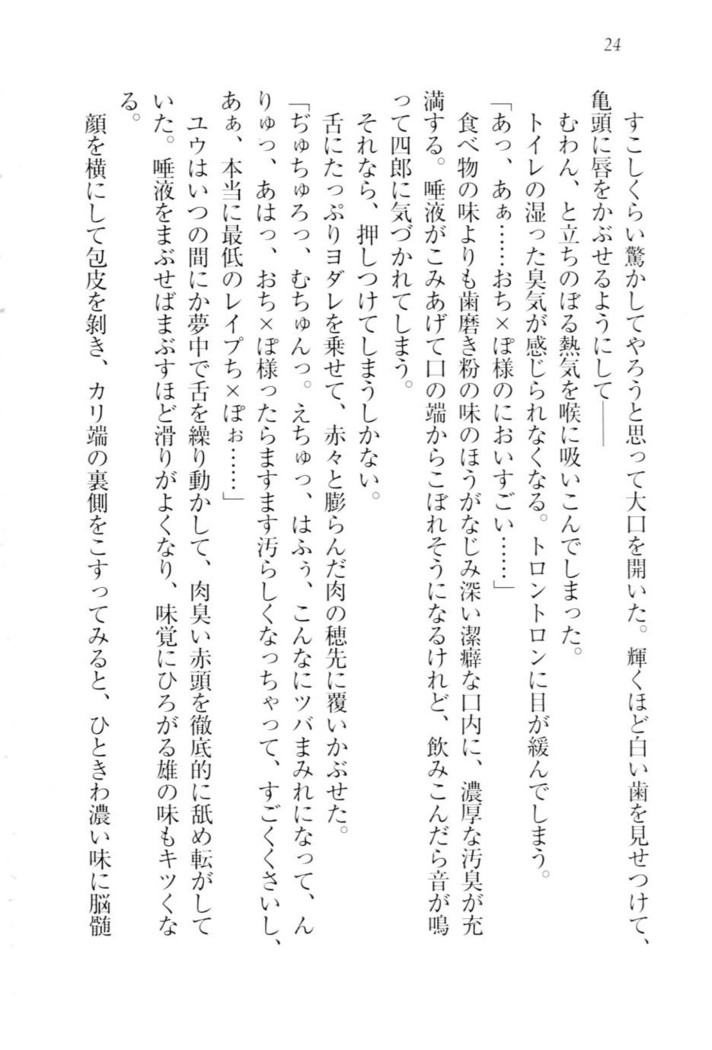 24
すこしくらい驚かしてやろうと思って大口を開いた。輝くほど白い歯を見せつけて、
亀頭に唇をかぶせるようにして――
むわん、と立ちのぼる熱気を喉に吸いこんでしまった。
トイレの湿った臭気が感じられなくなる。トロントロンに目が緩んでしまう。
「あっ、あぁ……おち×ぽ様のにおいすごい……」
食べ物の味よりも歯磨き粉の味のほうがなじみ深い潔癖な口内に、濃厚な汚臭が充
満する。唾液がこみあげて口の端からこぼれそうになるけれど、飲みこんだら音が鳴
って四郎に気づかれてしまう。
それなら、押しつけてしまうしかない。
舌にたっぷりヨダレを乗せて、赤々と膨らんだ肉の穂先に覆いかぶせた。
「ぢゅちゅろっ、むちゅんっ。えちゅっ、はふぅ、こんなにツバまみれになって、ん
りゅっ、あはっ、おち×ぽ様ったらますます汚らしくなっちゃって、すごくくさいし、
あぁ、本当に最低のレイプち×ぽぉ……」
ユウはいつの間にか夢中で舌を繰り動かして、肉臭い赤頭を徹底的に舐め転がして
いた。唾液をまぶせばまぶすほど滑りがよくなり、味覚にひろがる雄の味もキツくな
る。
顔を横にして包皮を剝き、カリ端の裏側をこすってみると、ひときわ濃い味に脳髄